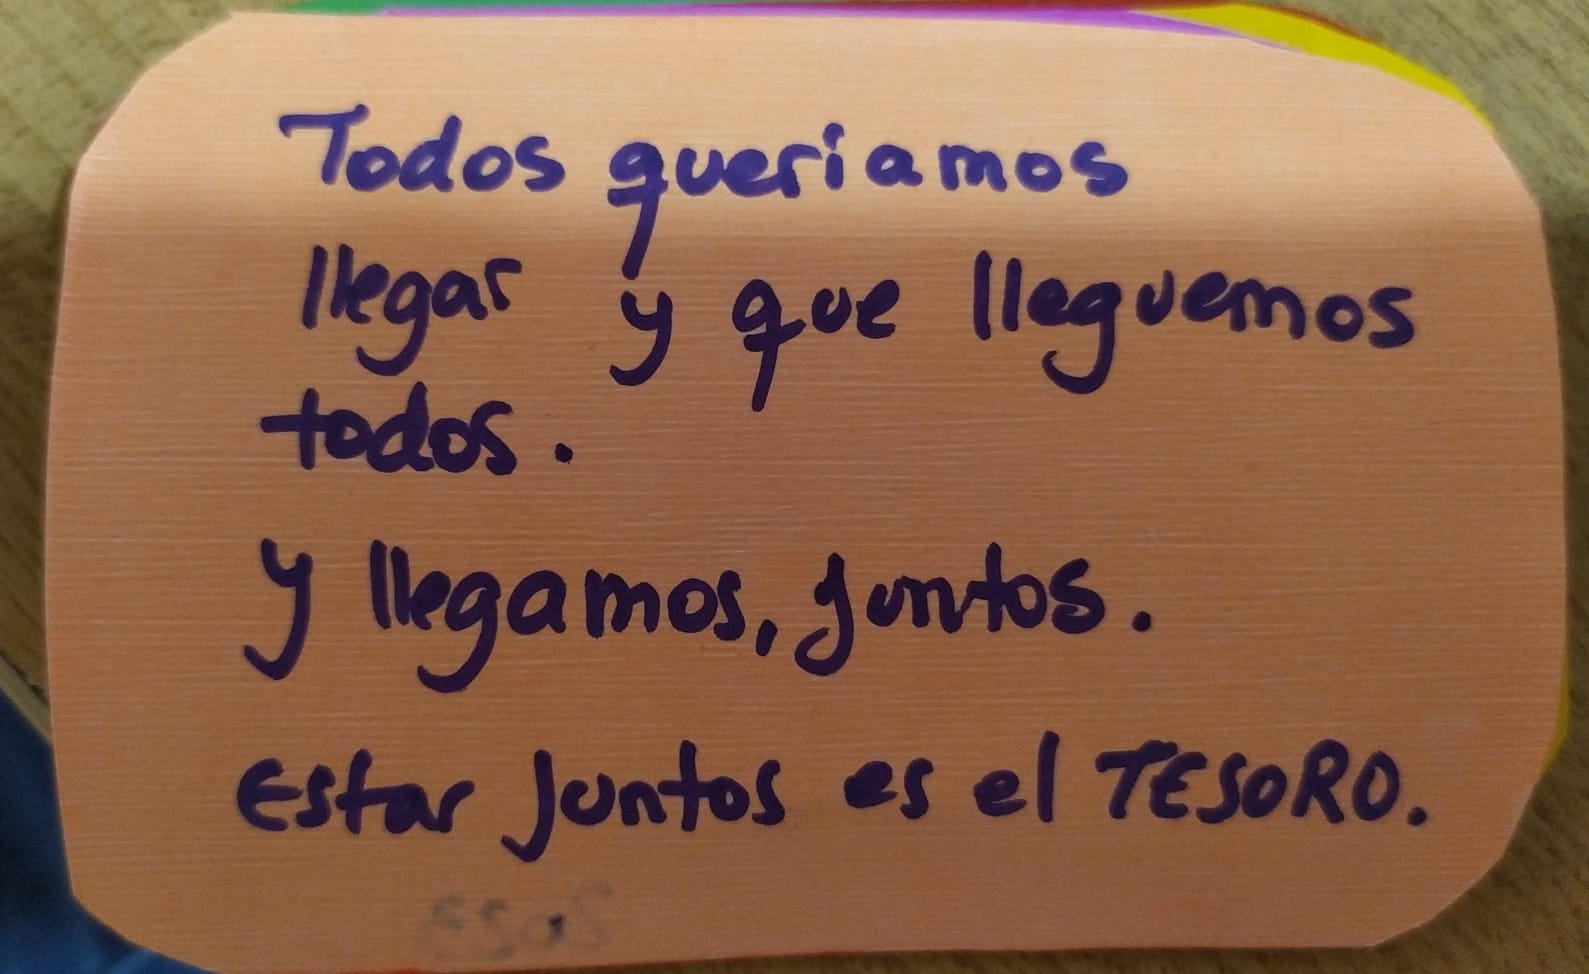 Todos queriamos
llegar y que lleguemos
todos.
y llegamos, juntos.
Estar juntos es el TESORO.